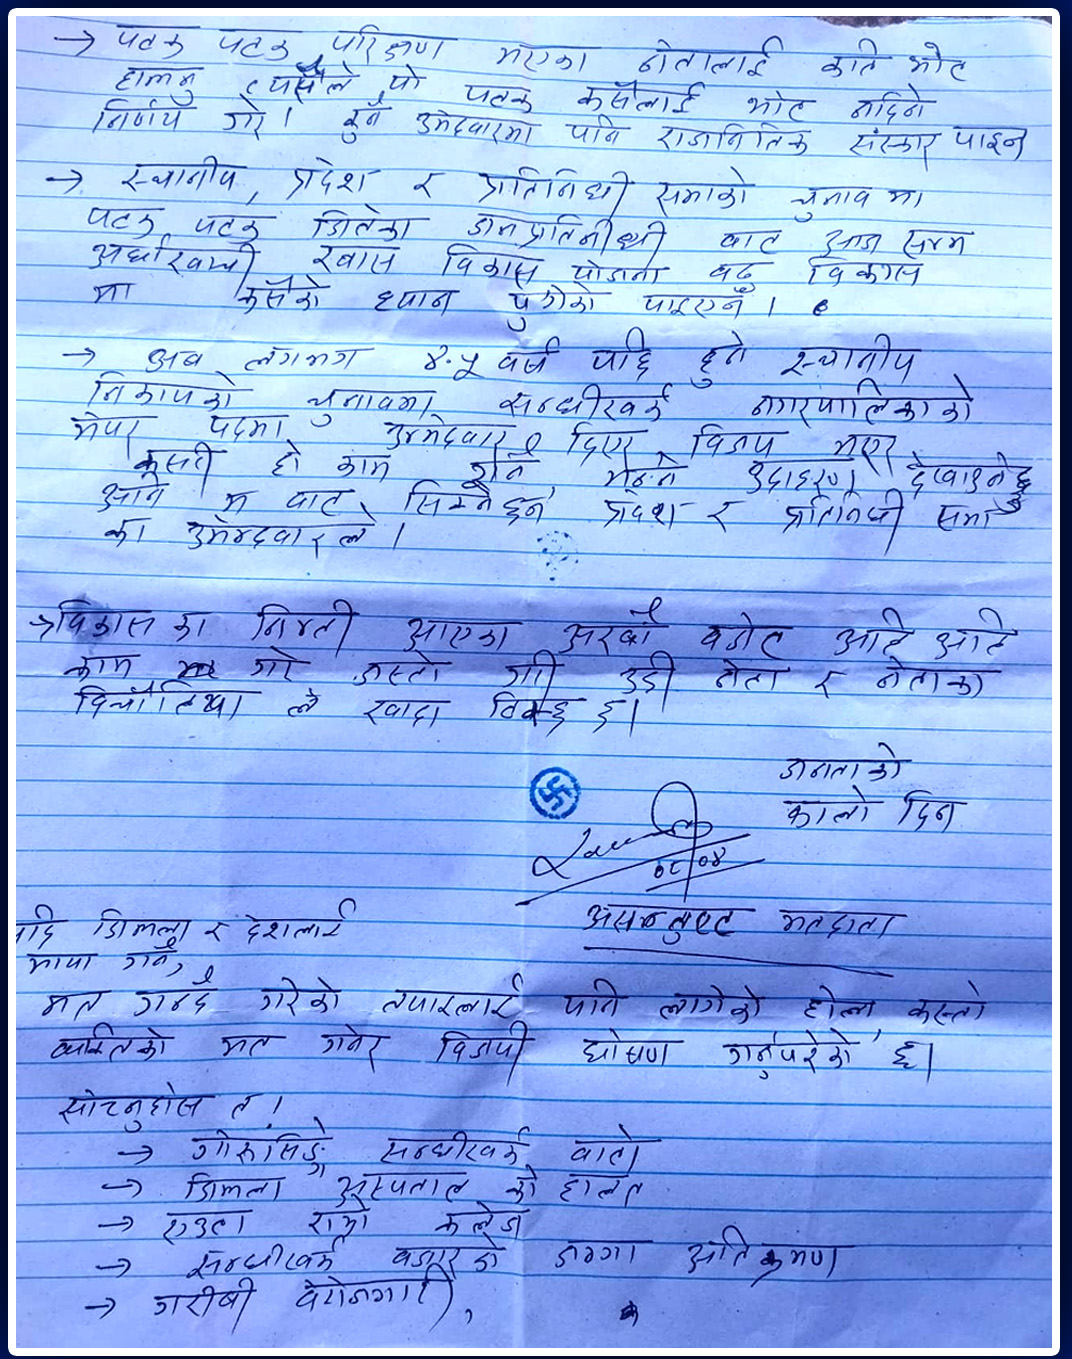 → पटक पटक परिक्षण भएका नेतालाई कति भोट
हाल्नु त्यसैले यो पटक कसैलाई भोट नदिने
निर्णय गरे। कुनै उमेदवारमा पनि राजनितिक संस्कार पाइन
→ स्थानीय, प्रदेश र प्रतिनिधी सभाको चुनाव मा
पटक पटक जितेका जनप्रतिनीधी बाट आज सम्म
अर्घाखाँची खास विकास योजना बृद्ध विकास
मा कसैको ध्यान पुगेको पाइएनँ।
→ अब लगभग ४.५ वर्ष पछि हुने स्थानीय
निकायको चुनावमा सन्धीखर्क नगरपालिकाको
मेयर पदमा उम्मेदवारी दिएर विजय भएर
कसरी हो काम गर्ने, भन्ने उदाहरण देखाउनेछु
अनि म बाट सिक्नेछन प्रदेश र प्रतिनिधी सभा
का उमेदवारले।
→ विकास का निम्ती आएका अरबौं बजेट आटे आटे
काम गरे जस्तो गरी उही नेता र नेताका
विचौलिया ले खादा ठिक्क छ।
जनताको
कालो दिन
०८/०४
असन्तुष्ट मतदाता
यदि जिल्ला र देशलाई
माया गर्ने,
मत गन्दै गरेको तपाइलाई पनि लागेको होला, कस्तो
व्यक्तिको मत गनेर विजयी घोषणा गर्नुपरेको छ।
सोच्नुहोस त।
→ गोरुसिङ्गे सन्धीखर्क बाटो
→ जिल्ला अस्पताल को हालत
→ एउटा राम्रो कलेज
→ सन्धीखर्क बजारको जग्गा अतिक्रमण
→ गरीबी बेरोजगारी,